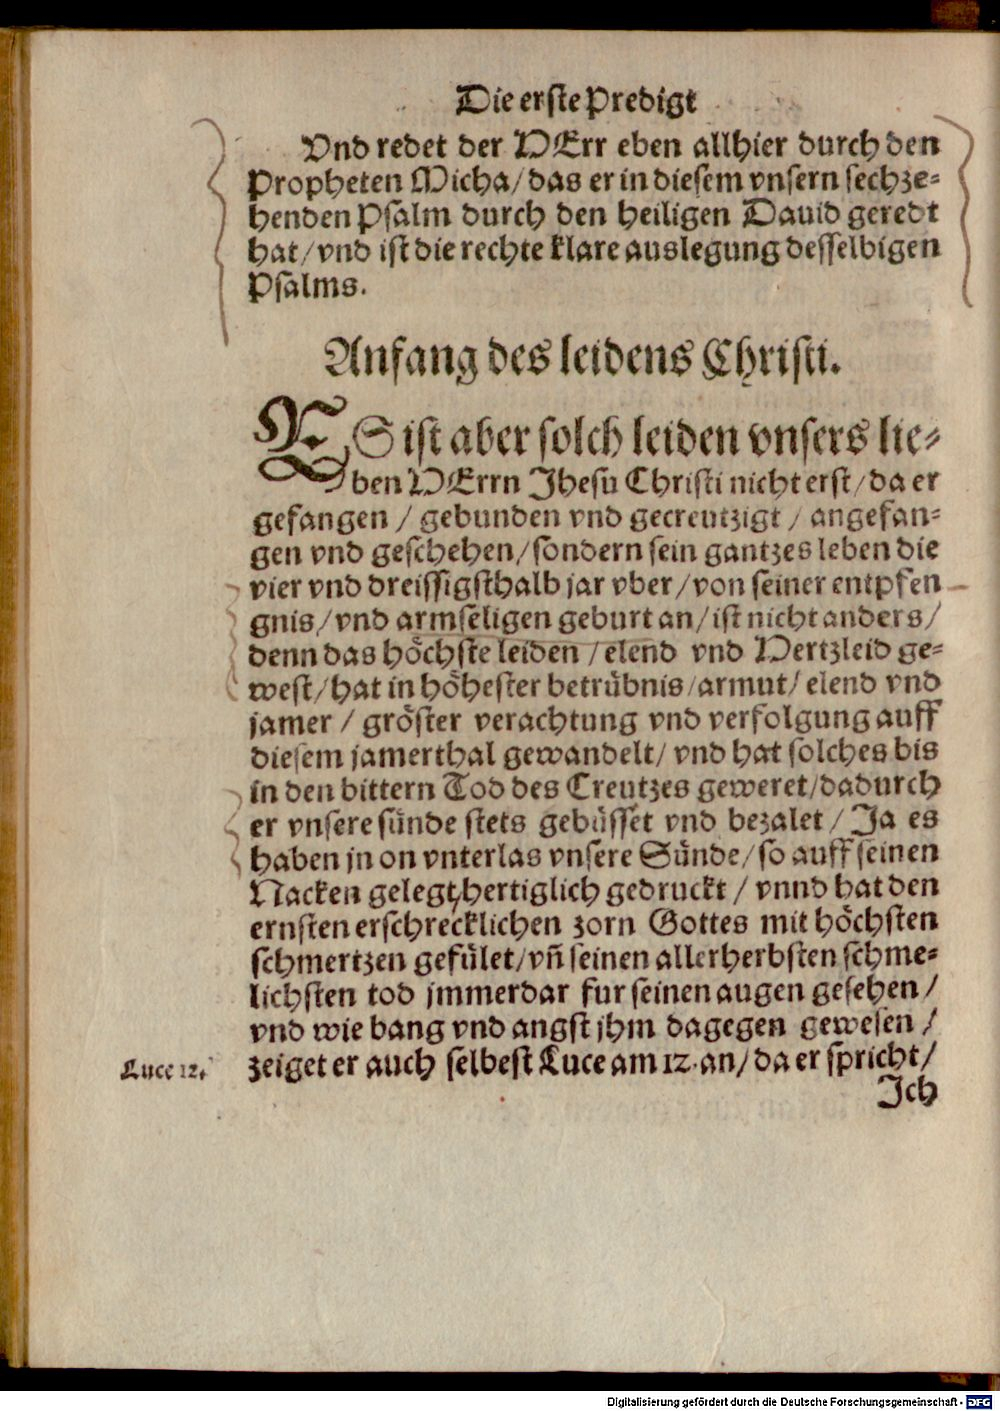 Die erste Predigt
Vnd redet der HErr eben allhier durch den
Propheten Micha/ das er in diesem vnsern sechze-
henden Psalm durch den heiligen Dauid geredt
hat/ vnd ist die rechte klare auslegung desselbigen
Psalms.
Anfang des leidens Christi.
ES ist aber solch leiden vnsers lie-
ben HErrn Jhesu Christi nicht erst/ da er
gefangen / gebunden vnd gecreutzigt / angefan-
gen vnd geschehen/ sondern sein gantzes leben die
vier vnd dreissigsthalb jar vber/ von seiner entpfen
gnis/ vnd armseligen geburt an/ ist nicht anders/
denn das höchste leiden / elend vnd Hertzleid ge-
west/ hat in höhester betrübnis/ armut/ elend vnd
jamer / gröster verachtung vnd verfolgung auff
diesem jamerthal gewandelt/ vnd hat solches bis
in den bittern Tod des Creutzes geweret/ dadurch
er vnsere sünde stets gebüsset vnd bezalet / Ja es
haben jn on vnterlas vnsere Sünde/ so auff seinen
Nacken gelegt, hertiglich gedruckt / vnnd hat den
ernsten erschrecklichen zorn Gottes mit höchsten
schmertzen gefület/ vñ seinen allerherbsten schme-
lichsten tod jmmerdar fur seinen augen gesehen /
vnd wie bang vnd angst jhm dagegen gewesen /
Luce 12. zeiget er auch selbest Luce am 12. an/ da er spricht/
Ich
Digitalisierung gefördert durch die Deutsche Forschungsgemeinschaft - DFG